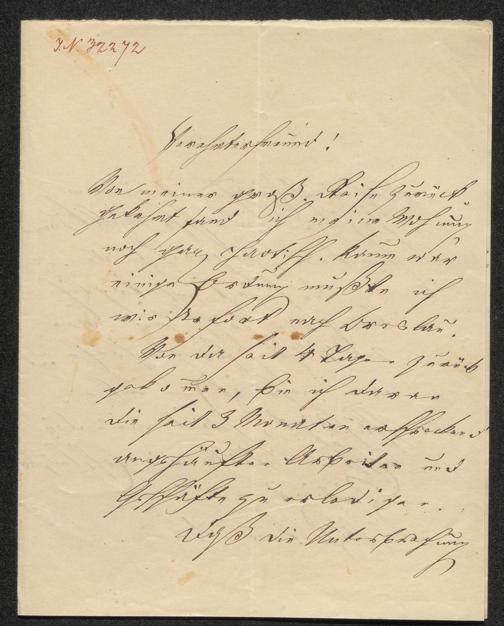 I.N 32272
Verehrter Freund!
Von meiner groß. Reise zurück
gekehrt fand ich meine Wohnung
noch ganz chaotisch. Kaum war
einige Ordnung mußte ich
wie sofort nach Breslau.
Von da seit 4 Tagen zurück
gekommen, bin ich daran
die seit 3 Monaten erschreckend
angehäuften Arbeiten und
Geschäfte zu erledigen.
Daß die Unterbrechung